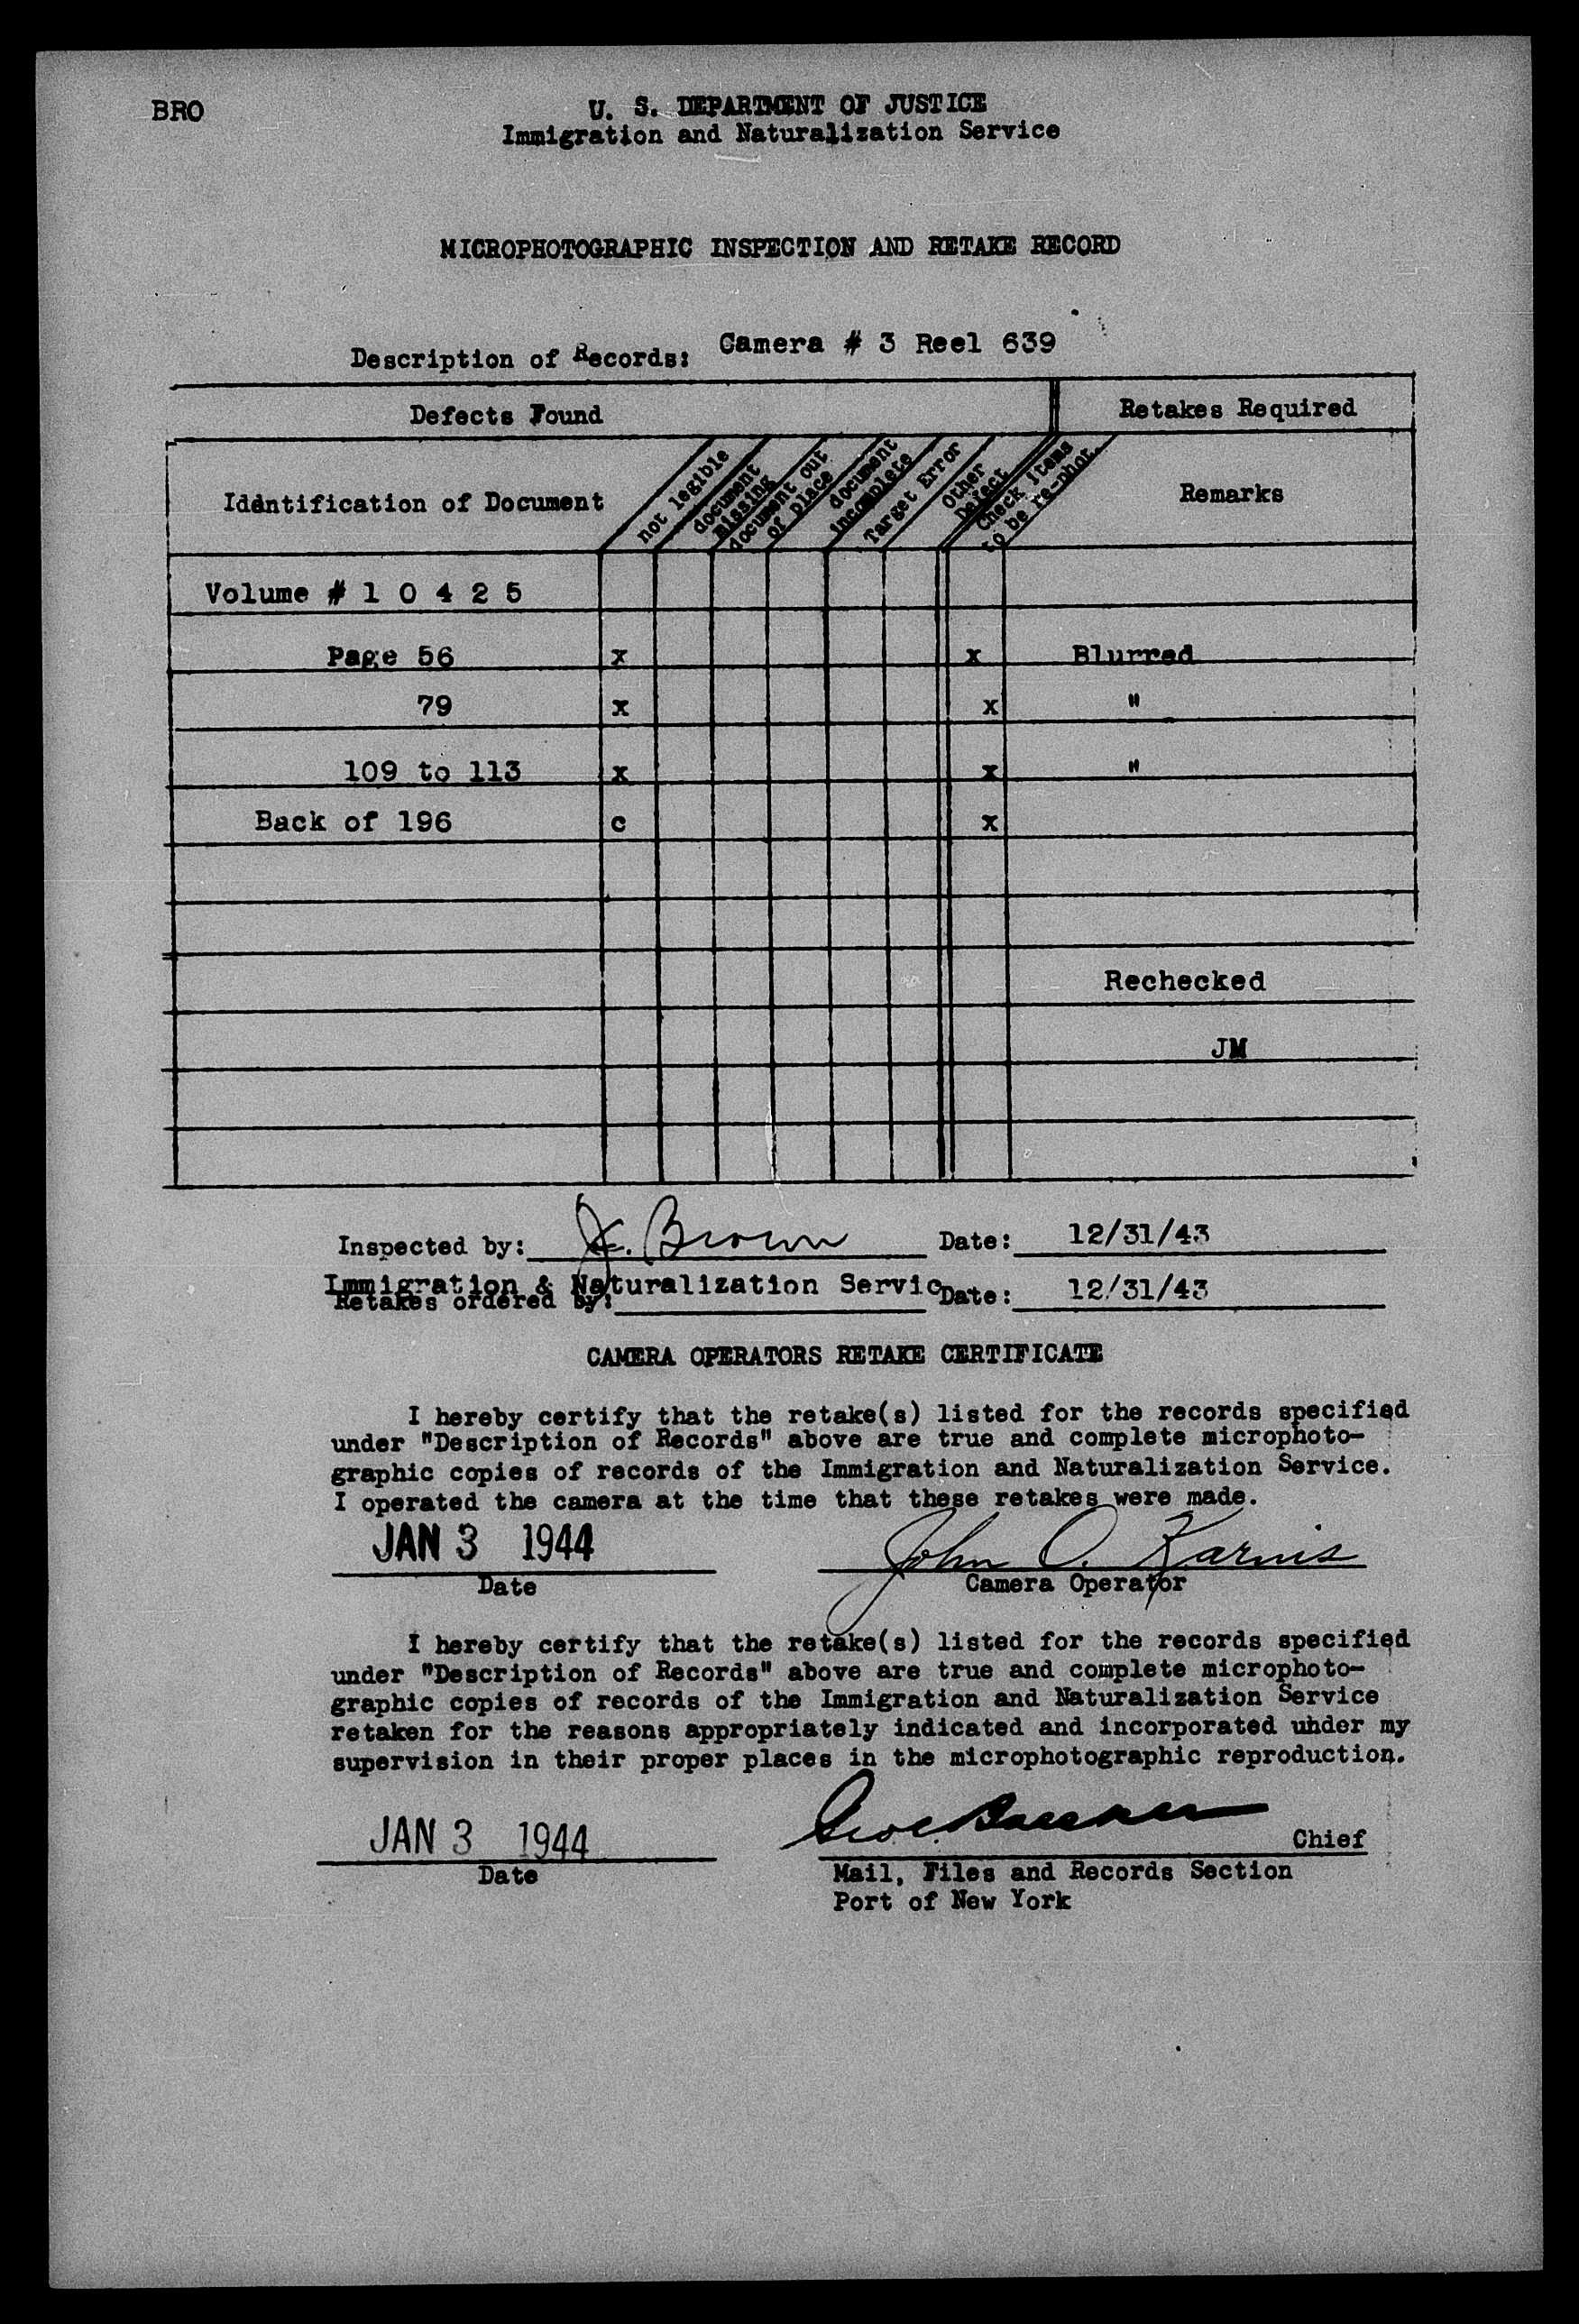 BRO
U. S. DEPARTMENT OF JUSTICE
Immigration and Naturalization Service
MICROPHOTOGRAPHIC INSPECTION AND RETAKE RECORD
Description of Records: Camera # 3 Reel 639
Defects Found Retakes Required
Identification of Document
not legible
document missing
document out of place
document incomplete
Target Error
Other Defect
Check items to be re-phot.
Remarks
Volume # 1 0 4 2 5
Page 56 x x Blurred
79 x x "
109 to 113 x x "
Back of 196 c x
Rechecked
JM
Inspected by: J. Brown Date: 12/31/43
Immigration & Naturalization Servic
Retakes ordered by: Date: 12/31/43
CAMERA OPERATORS RETAKE CERTIFICATE
I hereby certify that the retake(s) listed for the records specified
under "Description of Records" above are true and complete microphoto-
graphic copies of records of the Immigration and Naturalization Service.
I operated the camera at the time that these retakes were made.
JAN 3 1944 John O. Karnis
Date Camera Operator
I hereby certify that the retake(s) listed for the records specified
under "Description of Records" above are true and complete microphoto-
graphic copies of records of the Immigration and Naturalization Service
retaken for the reasons appropriately indicated and incorporated uhder my
supervision in their proper places in the microphotographic reproduction.
JAN 3 1944 Chief
Date Mail, Files and Records Section
Port of New York